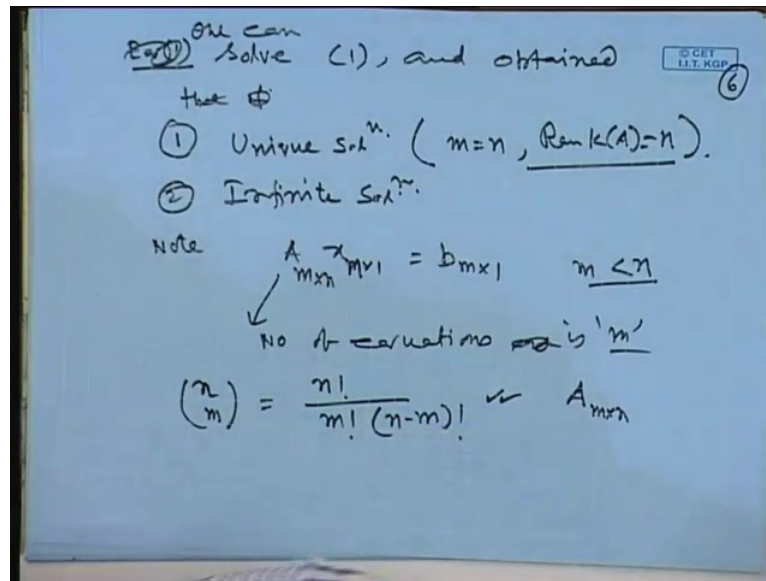 One can
Solve (1), and obtained
© CET
I.I.T. KGP
6
that
① Unique Solⁿ. ( m=n, Rank(A)=n ).
② Infinite Solⁿ.
Note A m×n x m×1 = b m×1 m < n
No of equations is 'm'
(n m) = n! / m! (n-m)! A m×n